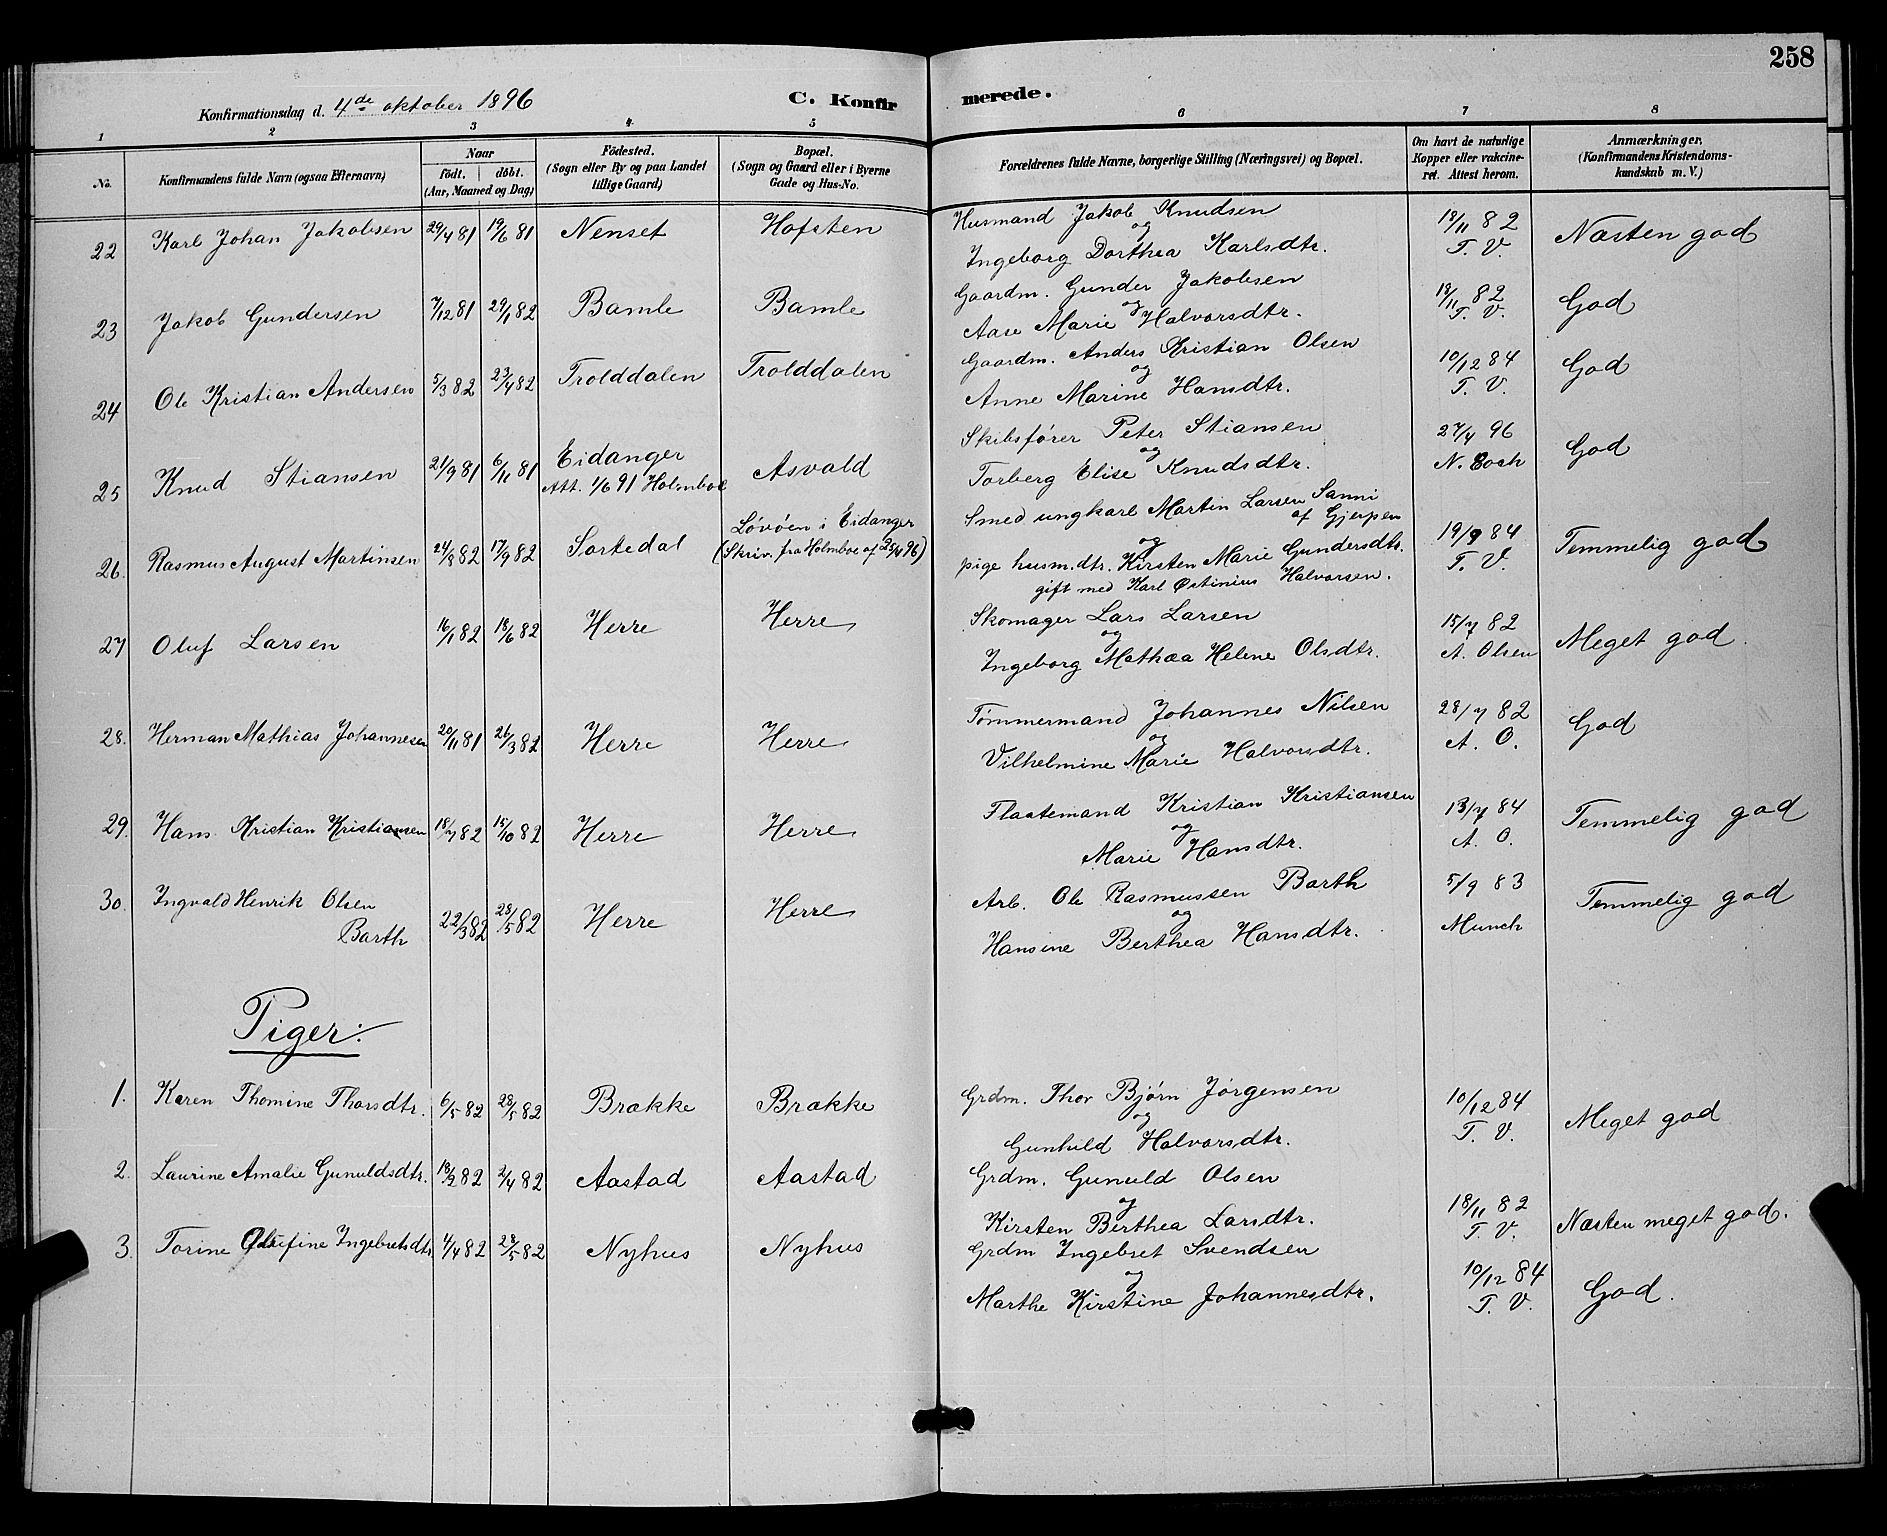 258
Konfirmationsdag d. 4de oktober 1896
C. Konfirmerede.
1 2 3 4 5 6 7 8
No.
Konfirmandens fulde Navn (ogsaa Efternavn)
Naar
Födt. döbt.
(Aar, Maaned og Dag)
Födested.
(Sogn eller By og paa Landet
tillige Gaard)
Bopæl.
(Sogn og Gaard eller i Byerne
Gade og Hus-No.
Forældrenes fulde Navne, borgerlige Stilling (Næringsvei) og Bopæl.
Om havt de naturlige
Kopper eller vakcine-
ret. Attest herom.
Anmærkninger.
(Konfirmandens Kristendoms-
kundskab m. V.)
22 Karl Johan Jakobsen 29/4 81 19/6 81 Nenset Hofsten Husmand Jakob Knudsen 18/11 82 Næsten god
og
Ingeborg Dorthea Karlsdtr. T. V.
23 Jakob Gundersen 7/12 81 29/1 82 Bamle Bamle Gaardm. Gunder Jakobsen 18/11 82 God
og
Aase Marie Halvorsdtr. T. V.
24 Ole Kristian Andersen 5/3 82 23/4 82 Trolddalen Trolddalen Gaardm. Anders Kristian Olsen 10/12 84 God
og
Anne Marine Hansdtr. T. V.
25 Knud Stiansen 21/9 81 6/11 81 Eidanger Asvald Skibsfører Peter Stiansen 27/4 96 God
Att. 1/6 91 Holmboe
og
Torberg Elise Knudsdtr. N. Koch
26. Rasmus August Martinsen 24/8 82 17/9 82 Sortedal Løvøen i Eidanger
(Skriv. fra Holmboe af 25/4 96)
Smed ungkarl Martin Larsen Sanni
af Gjerpen 19/9 84 Temmelig god
og
pige husm.dtr. Kirsten Marie Gundersdtr. T. V.
gift med Karl Østinius Halvorsen.
27 Oluf Larsen 16/1 82 18/6 82 Herre Herre Skomager Lars Larsen 15/7 82 Meget god.
og
Ingeborg Mathea Helene Olsdtr. A. Olsen
28. Herman Mathias Johannesen 20/11 81 26/3 82 Herre Herre Tømmermand Johannes Nilsen 28/7 82 God
og
Vilhelmine Marie Halvorsdtr. A. O.
29. Hans Kristian Kristiansen 18/7 82 15/10 82 Herre Herre Flaatemand Kristian Kristiansen 13/7 84 Temmelig god
og
Marie Hansdtr. A. O.
30. Ingvald Henrik Olsen
Barth 22/3 82 28/5 82 Herre Herre Arb. Ole Rasmussen Barth 5/9 83 Temmelig god
og
Hansine Berthea Hansdtr. Munch
Piger:
1. Karen Thomine Thorsdtr. 6/5 82 28/5 82 Brække Brække Grdm. Thor Bjørn Jørgensen 10/12 84 Meget god
og
Gunhild Halvorsdtr. T. V.
2. Laurine Amalie Gunuldsdtr. 13/2 82 2/4 82 Aastad Aastad Grdm. Gunuld Olsen 18/11 82 Næsten meget god.
og
Kirsten Berthea Larsdtr. T. V.
3. Torine Olefine Ingebretsdtr 4/4 82 28/5 82 Nyhus Nyhus Grdm Ingebret Svendsen 10/12 84 God.
og
Marthe Kirstine Johannesdtr. T. V.